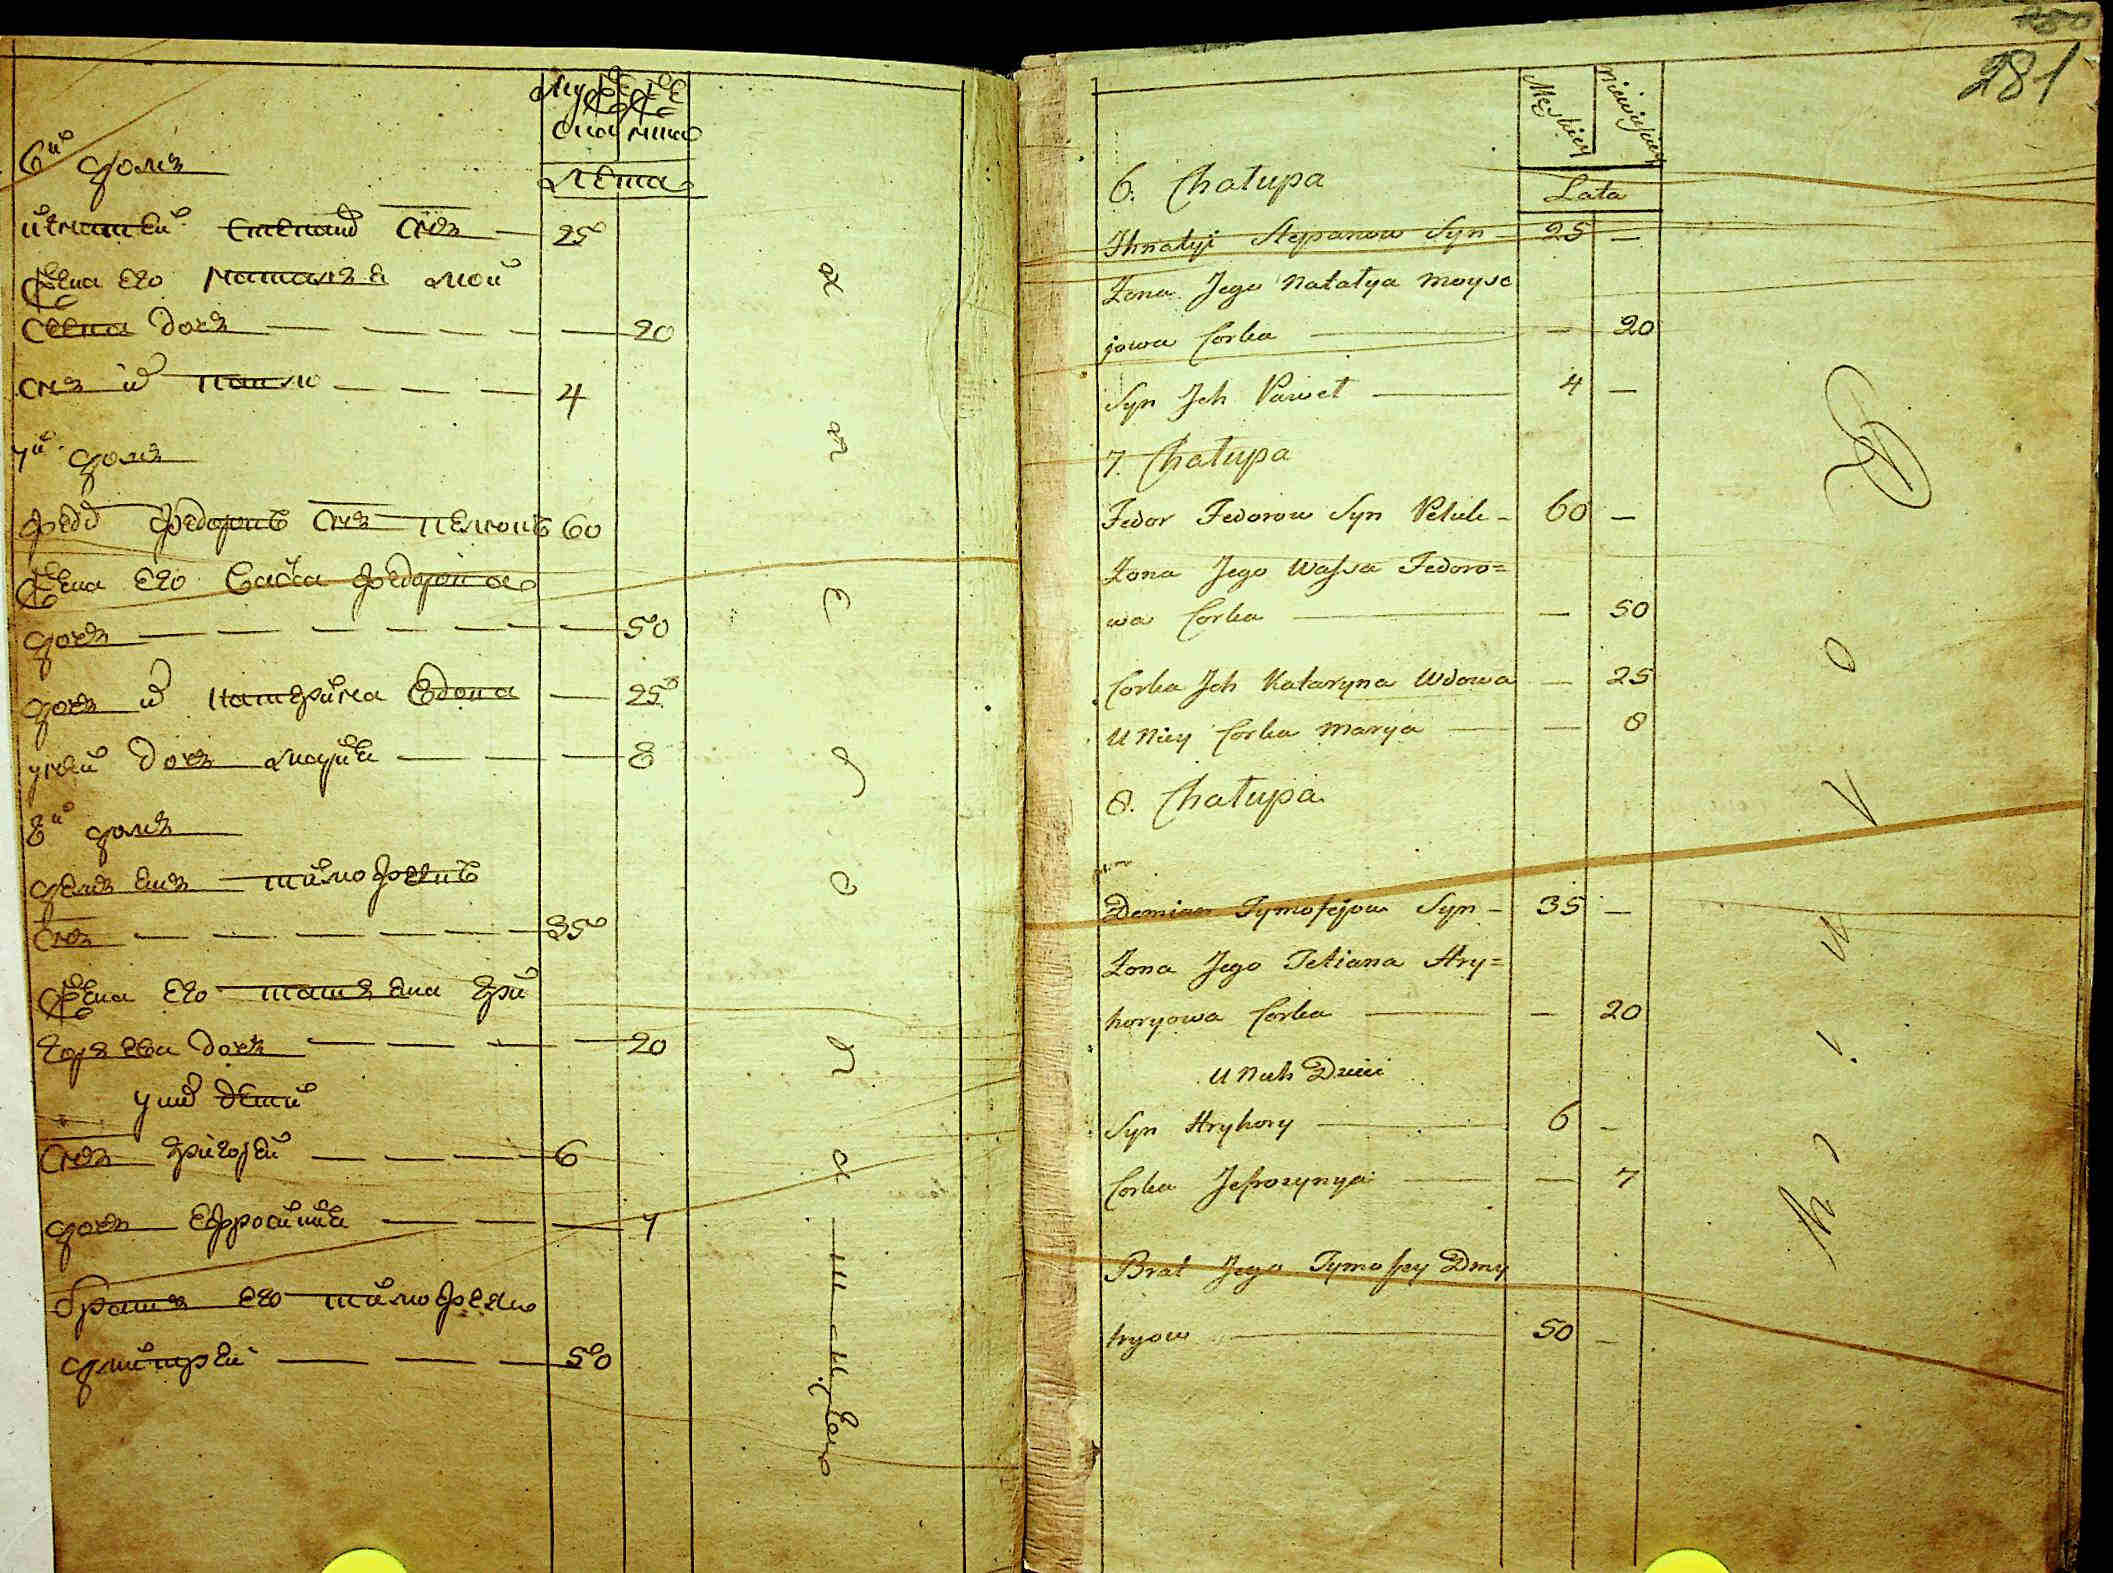 Муже Женс
ска нска
Лета
6й домъ
Игнатей Степанов снъ — 25
Жена его Наталья Мои
сеева дочъ — 20
снъ их Павло — 4
7й домъ
Федор Федоровъ снъ 60
Жена его Васса Федорова
дочъ — 50
дочъ их Катерина вдова — 25
у ней дочъ Мария — 8
8й домъ
Демьянъ Тимофеевъ
снъ — 35
Жена его Татьяна Гри
горьева дочъ — 20
у них дети
снъ Григорей — 6
дочъ Ефросиния — 7
братъ его Тимофей
Дмитрей — 50
281
Męskiey
Niewieściey
Lata
6. Chałupa
Ihnatyi Stepanow Syn 25 —
Zona Jego Natalya Moyse
jowa Corka — 20
Syn Jch Paweł — 4 —
7. Chałupa
Fedor Fedorow Syn 60 —
Zona Jego Wassa Fedoro=
wa Corka — 50
Corka Jch Kataryna Wdowa — 25
U Niey Corka Marya — 8
8. Chałupa
Demian Tymofejow Syn — 35 —
Zona Jego Tetiana Hry=
horyowa Corka — 20
U Nich Dzieci
Syn Hryhory — 6 —
Corka Jefrozynya — 7
Brat Jego Tymofiey Dmy
tryow — 50 —